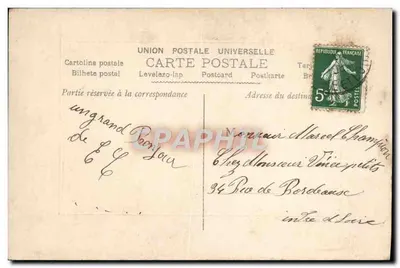 UNION POSTALE UNIVERSELLE
CARTE POSTALE
Cartolina postale
Bilheta postal
Levelezo-lap
Postcard
Postkarte
Partie réservée à la correspondance
Adresse du destin
REPUBLIQUE FRANCAISE
5c
POSTES
un grand Bonjour
de E C
CPAPHIL
Monsieur Marcel Champion
Chez Monsieur
94 Rue de Bordeaux
Indre et Loire